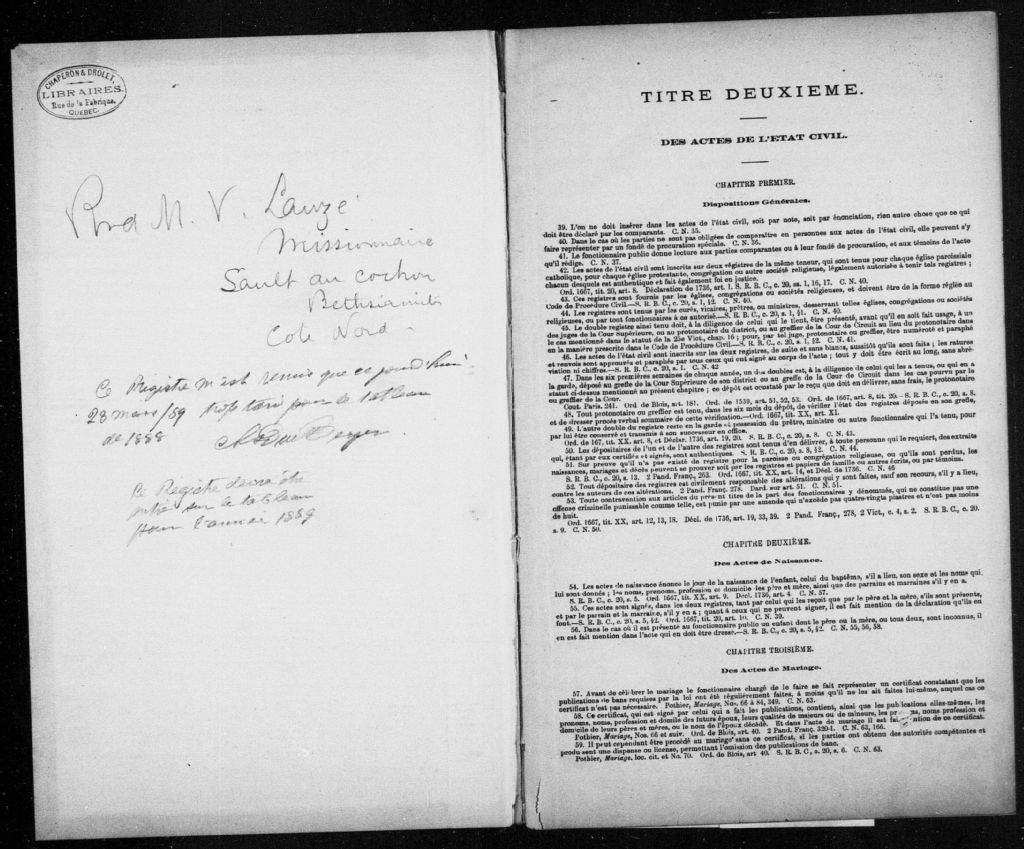 CHAPERON & DROLET,
LIBRAIRES.
Rue de la Fabrique,
QUEBEC.
Rvd M. V. Lauzé
Missionnaire
Sault au cochon
Bethsiamits
Cote Nord
Ce Registre m'est remis que ce jourd'hui
28 mars/89 trop tard pour le tableau
de 1888
Ce Registre devra être
entré sur le tableau
pour l'année 1889
TITRE DEUXIEME.
DES ACTES DE L'ETAT CIVIL.
CHAPITRE PREMIER.
Dispositions Générales.
39. L'on ne doit insérer dans les actes de l'état civil, soit par note, soit par énonciation, rien autre chose que ce qui
doit être déclaré par les comparants. C. N. 35.
40. Dans le cas où les parties ne sont pas obligées de comparaître en personnes aux actes de l'état civil, elle peuvent s'y
faire représenter par un fondé de procuration spéciale. C. N. 36.
41. Le fonctionnaire public donne lecture aux parties comparantes ou à leur fondé de procuration, et aux témoins de l'acte
qu'il rédige. C. N. 37.
42. Les actes de l'état civil sont inscrits sur deux régistres de la même teneur, qui sont tenus pour chaque église paroissiale
catholique, pour chaque église protestante, congrégation ou autre société religieuse, légalement autorisée à tenir tels registres ;
chacun desquels est authentique et fait également foi en justice.
Ord. 1667, tit. 20, art. 8. Déclaration de 1736, art. 1. S. R. B. C., c. 20, ss. 1, 16, 17. C. N. 40.
43. Ces registres sont fournis par les églises, congrégations ou sociétés religieuses, et doivent être de la forme réglée au
Code de Procédure Civil.—S. R. B. C., c. 20, s. 1, §2. C. N. 40.
44. Les registres sont tenus par les curés, vicaires, prêtres, ou ministres, desservant telles églises, congrégations ou sociétés
religieuses, ou par tout fonctionnaires à ce autorisé.—S. R. B. C., c. 20, s. 1, §1. C. N. 40.
45. Le double registre ainsi tenu doit, à la diligence de celui qui le tient, être présenté, avant qu'il en soit fait usage, à un
des juges de la Cour Supérieure, ou au protonotaire du district, ou au greffier de la Cour de Circuit au lieu du protonotaire dans
le cas mentionné dans le statut de la 25e Vict., chap. 16 ; pour, par tel juge, protonotaire ou greffier, être numéroté et paraphé
en la manière prescrite dans le Code de Procédure Civil.—S. R. B. C., c. 20, s. 1, §2. C. N. 41.
46. Les actes de l'état civil sont inscrits sur les deux registres, de suite et sans blancs, aussitôt qu'ils sont faits ; les ratures
et renvois sont approuvés et paraphés par tous ceux qui ont signé au corps de l'acte ; tout y doit être écrit au long, sans abré-
viation ni chiffres.—S. R. B. C., c. 20, s. 1. C. N. 42
47. Dans les six premières semaines de chaque année, un des doubles est, à la diligence de celui qui les a tenus, ou qui en a
la garde, déposé au greffe de la Cour Supérieure de son district ou au greffe de la Cour de Circuit dans les cas pourvu par le
statut ci-dessus mentionné au présent chapitre ; ce dépôt est constaté par le reçu que doit en délivrer, sans frais, le protonotaire
ou greffier de la Cour.
Cout. Paris. 241. Ord. de Blois, art. 181. Ord. de 1539, art. 51, 52, 53. Ord. de 1667, art. 8, tit. 20.—S. R. B. C., c. 20, s. 8.
48. Tout protonotaire ou greffier est tenu, dans les six mois du dépôt, de vérifier l'état des registres déposés en son greffe,
et de dresser procès verbal sommaire de cette vérification.—Ord. 1667, tit. XX, art. XI.
49. L'autre double du registre reste en la garde et possession du prêtre, ministre ou autre fonctionnaire qui l'a tenu, pour
par lui être conservé et transmis à son successeur en office.
Ord. de 167, tit. XX, art. 8, et Déclar. 1736, art. 19, 20. S. R. B. C., c. 20, s. 8. C. N. 43.
50. Les dépositaires de l'un et de l'autre des registres sont tenus d'en délivrer, à toute personne qui le requiert, des extraits
qui, étant par eux certifiés et signés, sont authentiques. S. R. B. C., c. 20, s. 8, §2. C. N. 44.
51. Sur preuve qu'il n'a pas existé de registre pour la paroisse ou congrégation religieuse, ou qu'ils sont perdus, les
naissances, mariages et décès peuvent se prouver soit par les registres et papiers de famille ou autres écrits, ou par témoins.
S. R. B. C., c. 20, s. 13. 2 Pand. Franç. 263. Ord. 1667, tit. XX, art. 14, et Décl. de 1736. C. N. 46
52. Tout dépositaire des registres est civilement responsable des altérations qui y sont faites, sauf son recours, s'il y a lieu,
contre les auteurs de ces altérations. 2 Pand. Franç. 278. Dard. sur art. 51. C. N. 51.
53. Toute contravention aux articles du présent titre de la part des fonctionnaires y dénommés, qui ne constitue pas une
offense criminelle punissable comme telle, est punie par une amende qui n'excède pas quatre-vingts piastres et n'est pas moins
de huit.
Ord. 1667, tit. XX, art. 12, 13, 18. Décl. de 1736, art. 19, 33, 39. 2 Pand. Franç., 278, 2 Vict., c. 4, s. 2. S. R. B. C., c. 20.
s. 9. C. N. 50.
CHAPITRE DEUXIÈME.
Des Actes de Naissance.
54. Les actes de naissance énonce le jour de la naissance de l'enfant, celui du baptême, s'il a lieu, son sexe et les noms qui
lui sont donnés ; les noms, prenoms, profession et domicile des père et mère, ainsi que des parrains et marraines s'il y en a.
S. R. B. C., c. 20, s. 5. Ord 1667, tit. XX, art. 9. Décl. 1736, art. 4 C. N. 57.
55. Ces actes sont signés, dans les deux registres, tant par celui qui les reçoit que par le père et la mère, s'ils sont présents,
et par le parrain et la marraine, s'il y en a ; quant à ceux qui ne peuvent signer, il est fait mention de la déclaration qu'ils en
font.—S. R. B. C., c. 20, s. 5, §2. Ord. 1667, tit. 20, art. 10. C. N. 39.
56. Dans le cas où il est présenté au fonctionnaire public un enfant dont le père ou la mère, ou tous deux, sont inconnus, il
en est fait mention dans l'acte qui en doit être dressé.—S. R. B. C., c. 20, s. 5, §2. C. N. 55, 56, 58.
CHAPITRE TROISIÈME.
Des Actes de Mariage.
57. Avant de célébrer le mariage le fonctionnaire chargé de le faire se fait représenter un certificat constatant que les
publications de bans requises par la loi ont été régulièrement faites, à moins qu'il ne les ait faites lui-même, auquel cas ce
certificat n'est pas nécessaire. Pothier, Mariage, Nos. 66 à 84, 349. C. N. 63.
58. Ce certificat, qui est signé par celui qui a fait les publications, contient, ainsi que les publications elles-mêmes, les
prenoms, noms, profession et domicile des futurs époux, leurs qualités de majeurs ou de mineurs, les noms, profession et
domicile de leurs pères et mères, ou le nom de l'époux décédé. Et dans l'acte de mariage il est fait mention de ce certificat.
Pothier, Mariage, Nos. 66 et suiv. Ord. de Blois, art. 40. 2 Pand. Franç. 320-1. C. N. 63, 166.
59. Il peut cependant être procédé au mariage sans ce certificat, si les parties ont obtenu des autorités compétentes et
produisent une dispense ou license, permettant l'omission des publications de banc.
Pothier, Mariage, loc. cit. et No. 70. Ord. de Blois, art 40. S. R. B. C., c. 20, s. 6. C. N. 63.